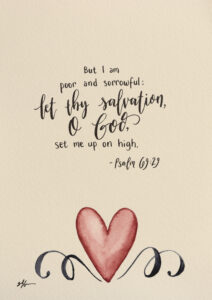 But I am
poor and sorrowful:
let thy salvation,
O God,
set me up on high.
- Psalm 69:29